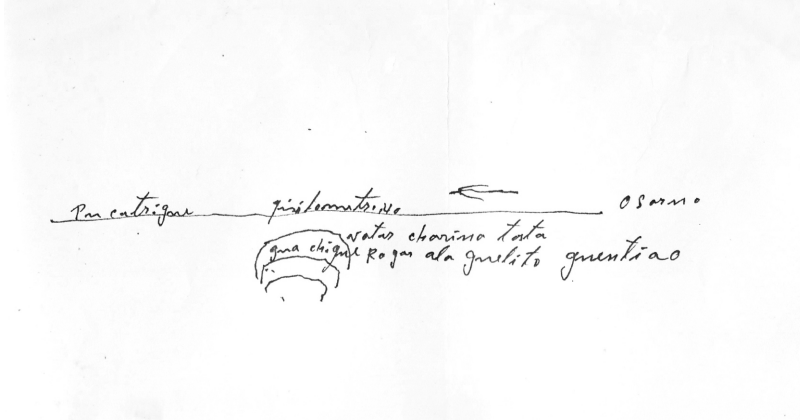 Pucatrigue quilometro 40 Osorno
votar charina tosta
gua chigue Rogar ala guelito guentiao